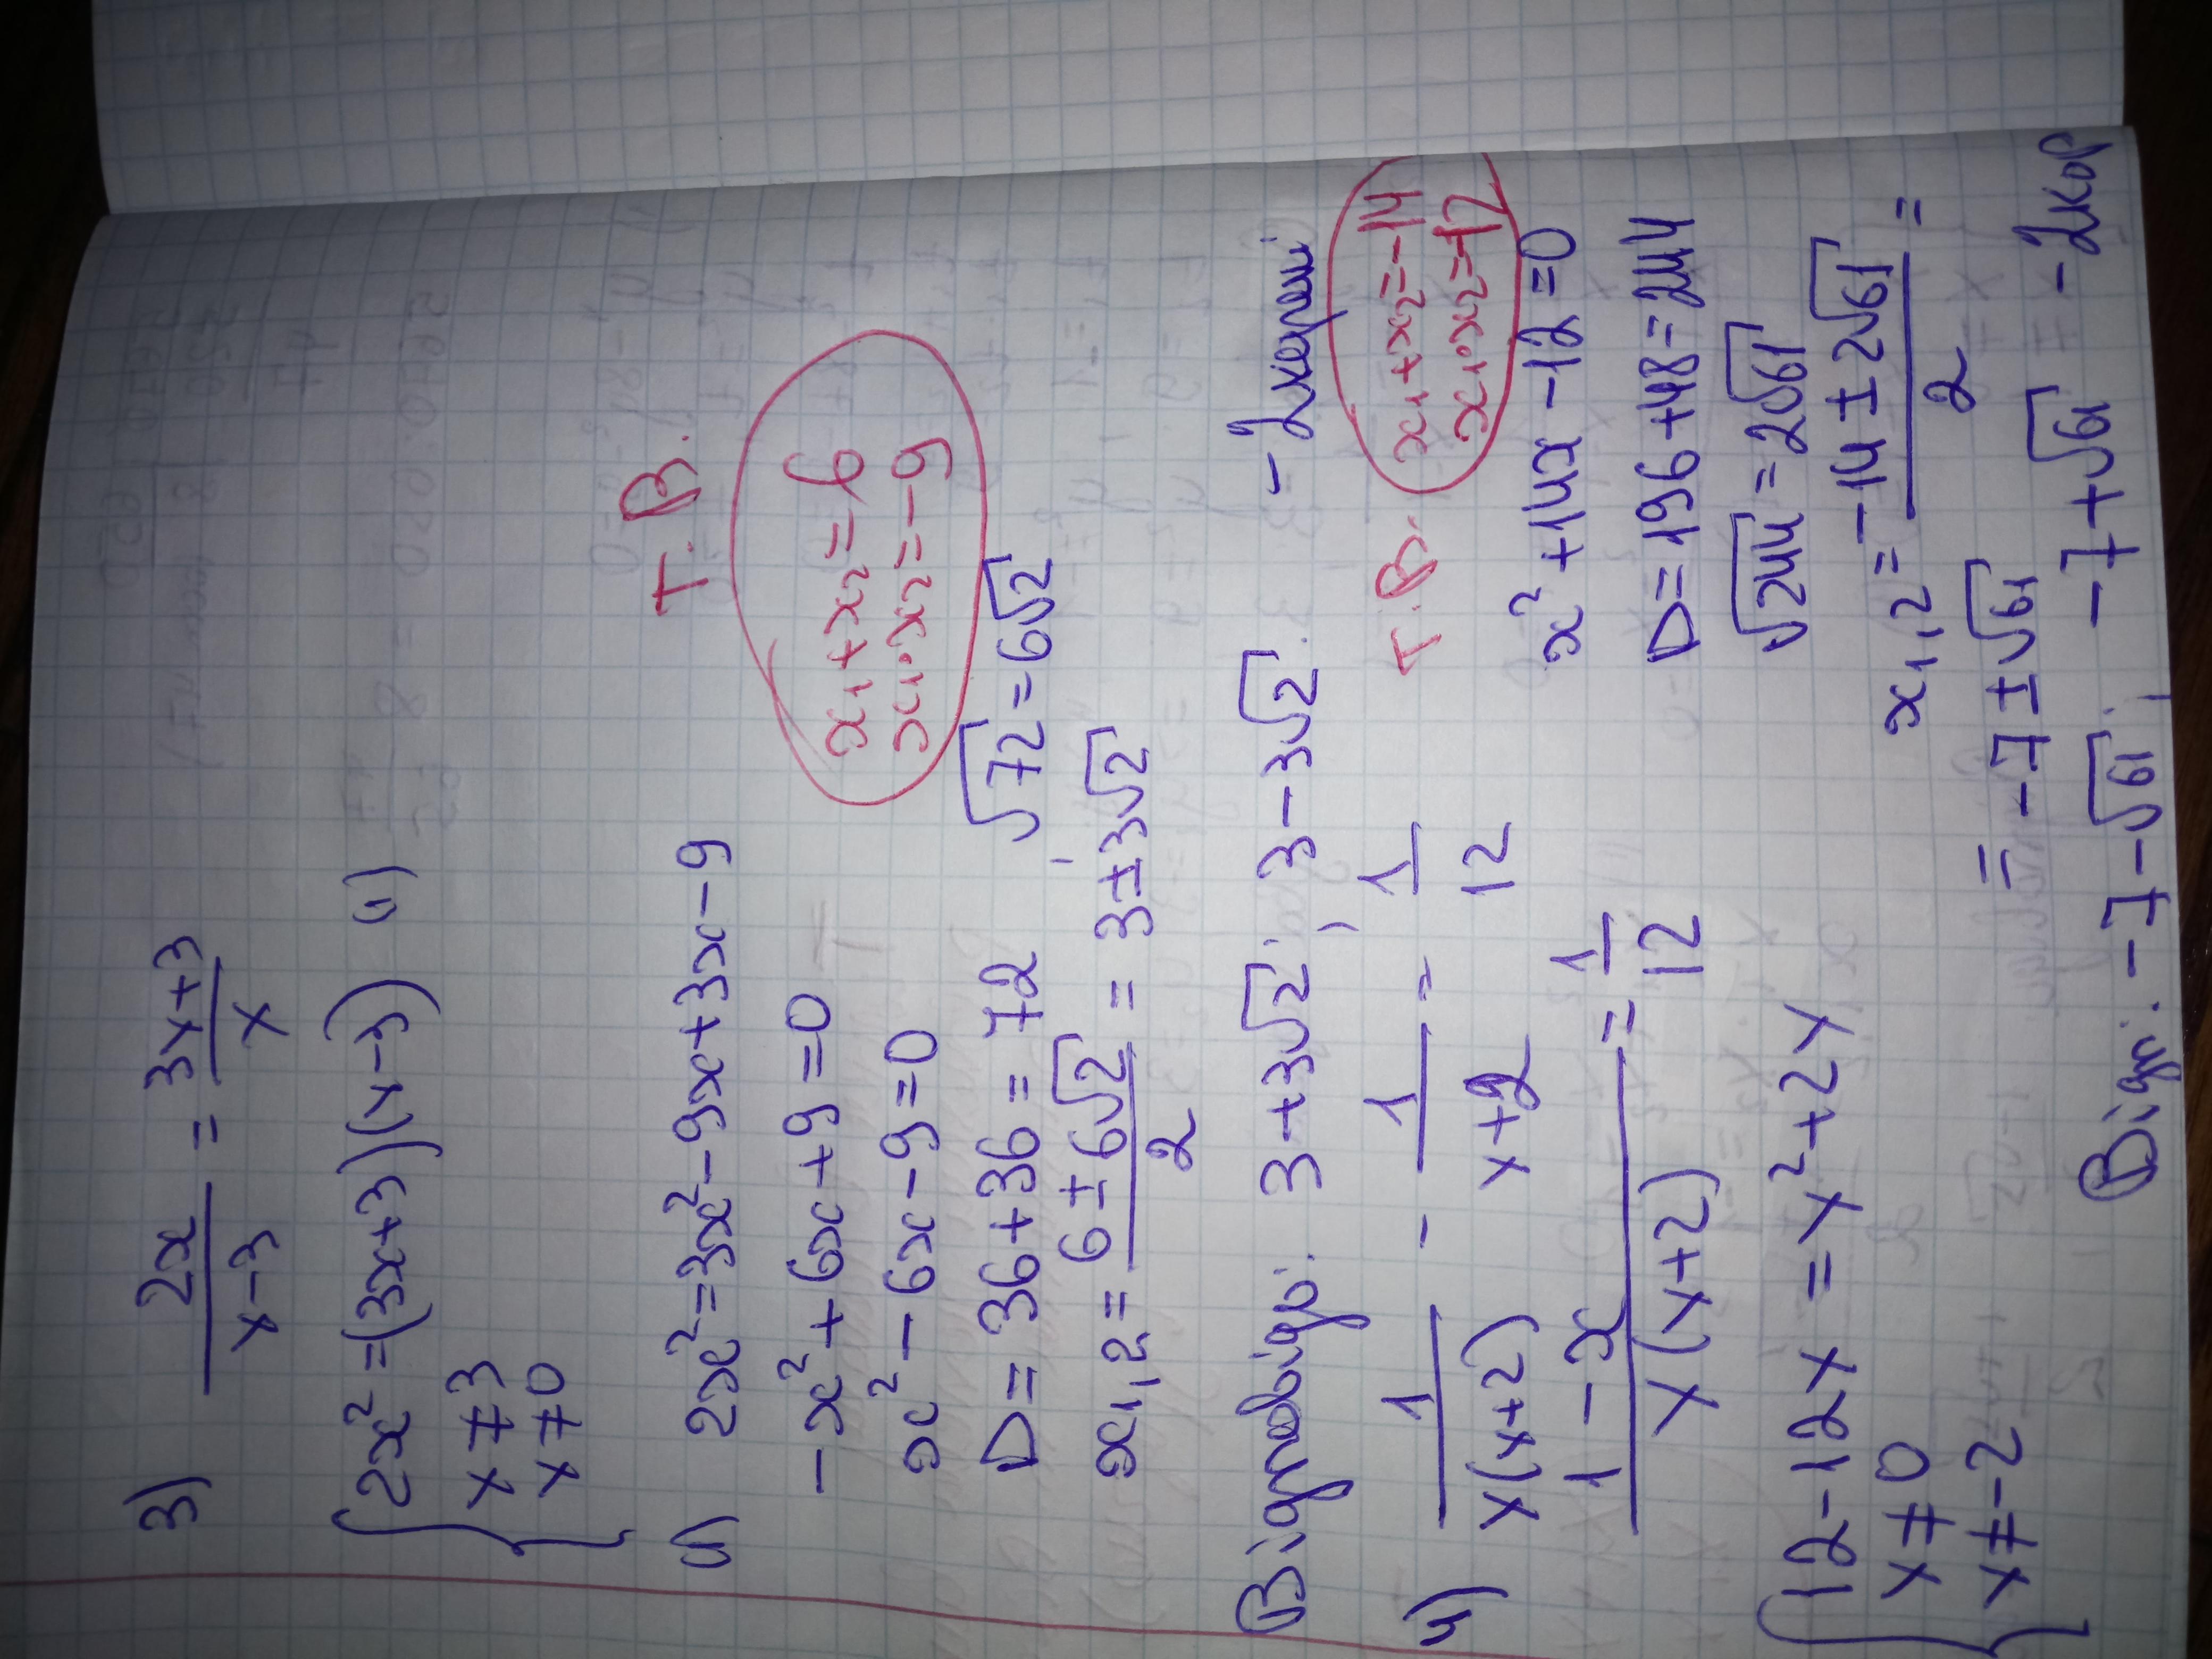 3) 2x/(x-3) = (3x+3)/x
{ 2x²=(3x+3)(x-3)
x≠3
x≠0
2x²=3x²-9x+3x-9
-x²+6x+9=0
x²-6x-9=0
D=36+36=72
√72=6√2
x₁,₂=(6±6√2)/2=3±3√2
Т.В.
x₁+x₂=6
x₁·x₂=-9
Відповідь: 3+3√2; 3-3√2. -2корені
4) 1/(x(x+2)) - 1/(x+2) = 1/12
(1-x)/(x(x+2)) = 1/12
{ 12-12x=x²+2x
x≠0
x≠-2
Т.В.
x₁+x₂=-14
x₁·x₂=-12
x²+14x-12=0
D=196+48=244
√244=2√61
x₁,₂=(-14±2√61)/2=
=-7±√61
Відп.: -7-√61; -7+√61 -2кор